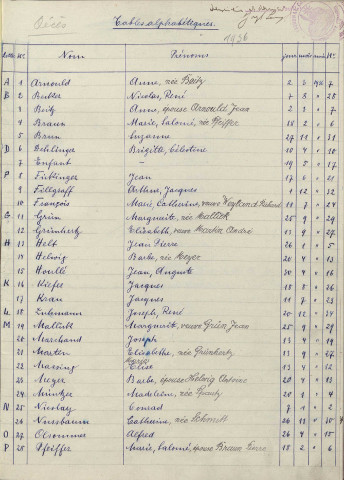 Décès
Tables alphabétiques.
1936
Lettre N° Nom Prénoms jour mois N°
A 1 Arnould Anne, née Beitz 2 3 7
B 2 Becker Nicolas, René 7 8 28
3 Beitz Anne, épouse Arnould Jean 2 3 7
4 Braun Marie, Salomé, née Pfeiffer 18 2 6
5 Brun Suzanne 27 11 31
D 6 Dehlinger Brigitte, Célestine 10 19
7 Enfant – 19 5 17
F 8 Jean 17 6 21
9 Füllgraff Arthur, Jacques 1 12 32
10 François Marie, Catherine, veuve 11 7 24
G 11 Grün Marguerite, née Mallick 25 9 29
12 Grünhertz Elisabeth, veuve Martin André 13 9 27
H 13 Helt Jean Pierre 26 1 5
14 Helwig Barbe, née Meyer 20 4 13
15 Houllé Jean, Auguste 30 4 16
K 16 Kiefer Jacques 18 5 26
17 Krau Jacques 11 7 23
L 18 Lehmann Joseph, René 20 12 34
M 19 Mallick Marguerite, veuve Grün Jean 25 9 29
20 Marchand Joseph 13 4 19
21 Martin Elisabethe, née Grünhertz 13 9 27
22 Massing Elise 13 4 12
23 Meyer Barbe, épouse Helwig Antoine 20 4 13
24 Müntzer Madeleine, née 20 1 4
N 25 Nicolay Conrad 7 1 2
26 Nussbaum Catherine, née Schmitt 26 13 30
O 27 Olsommer Alfred 26 4 15
P 28 Pfeiffer Marie, Salomé, épouse Braun Pierre 18 2 6